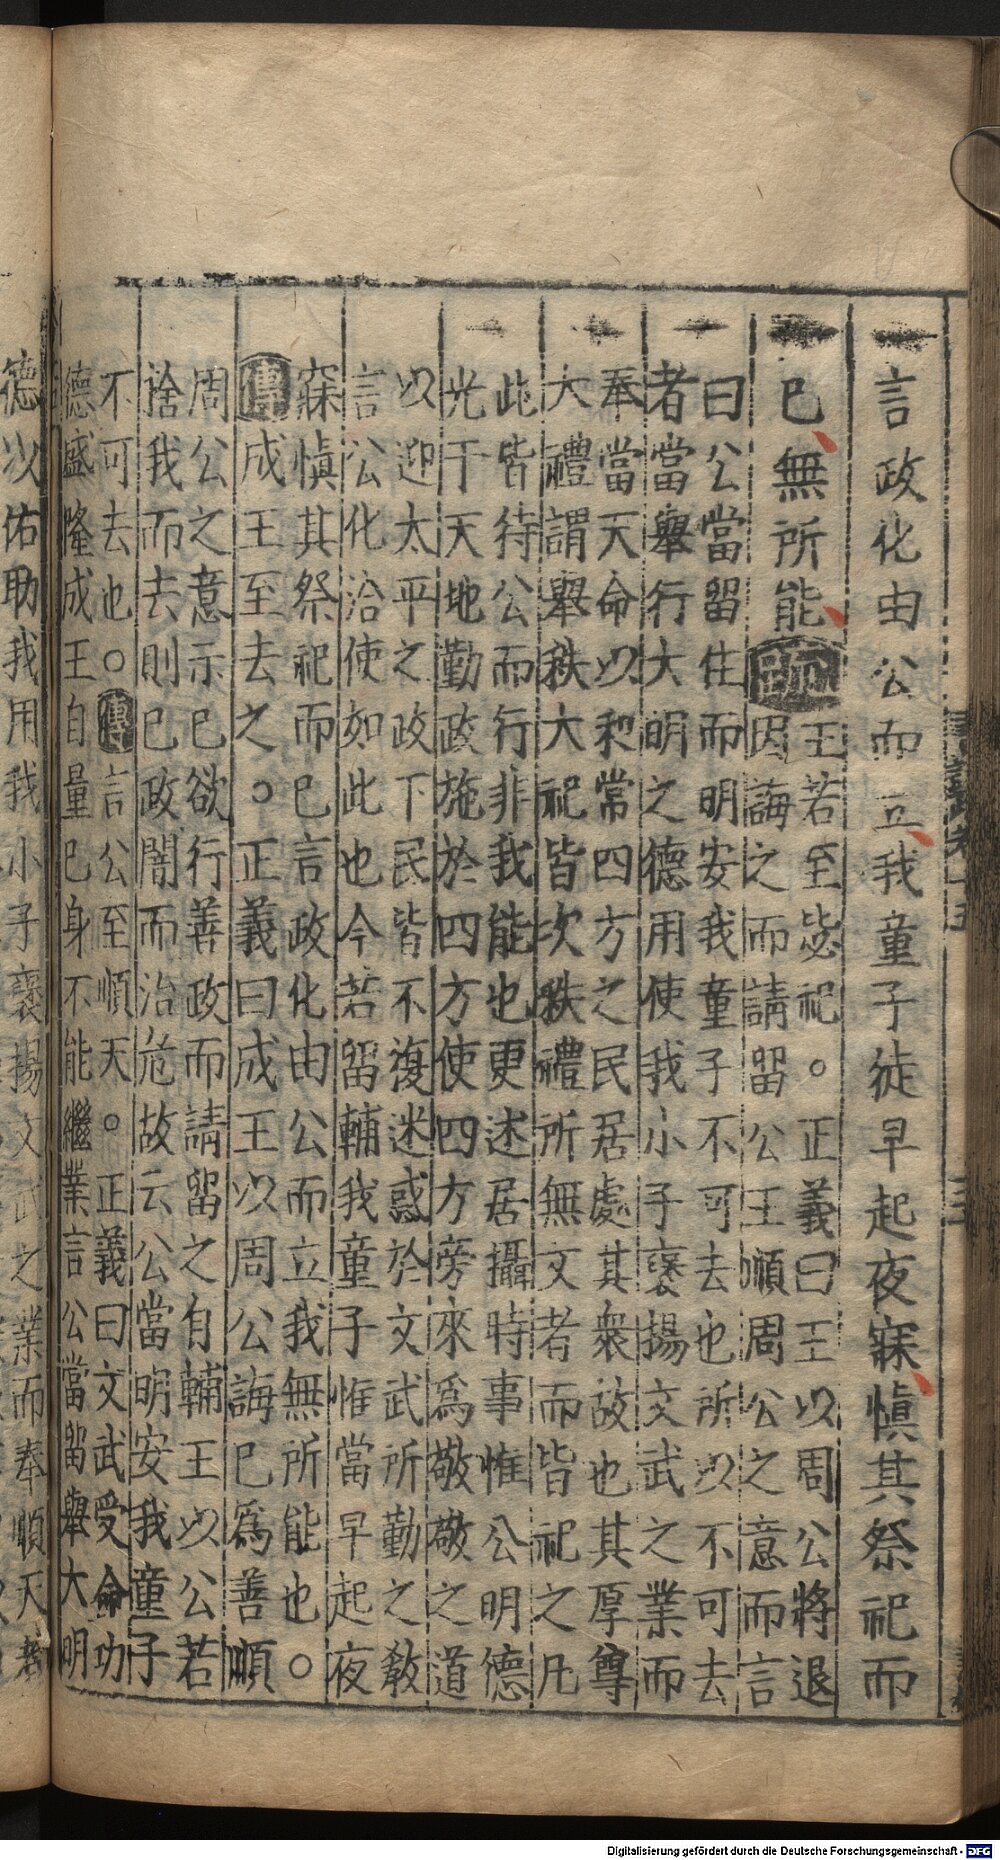 言政化由公而立我童子徒早起夜寐慎其祭祀而
已無所能疏
王若至毖祀。正義曰王以周公將退
因誨之而請留公王順周公之意而言
曰公當留住而明安我童子不可去也所以不可去
者當舉行大明之德用使我小子褒揚文武之業而
奉當天命以和常四方之民居處其衆故也其厚尊
大禮謂舉秩大祀皆次秩禮所無文者而皆祀之凡
此皆待公而行非我能也更述居攝時事惟公明德
光于天地勤政施於四方使四方旁來爲敬敬之道
以迎太平之政下民皆不復迷惑於文武所勤之敎
言公化洽使如此也今若留輔我童子惟當早起夜
寐慎其祭祀而已言政化由公而立我無所能也。
傳成王至去之。正義曰成王以周公誨己爲善順
周公之意示已欲行善政而請留之自輔王以公若
捨我而去則已政闇而治危故云公當明安我童子
不可去也。傳言公至順天。正義曰文武受命功
德盛隆成王自量已身不能繼業言公當留舉大明
德以佑助我用我小子褒揚文武之業而奉順天者
Digitalisierung gefördert durch die Deutsche Forschungsgemeinschaft - DFG